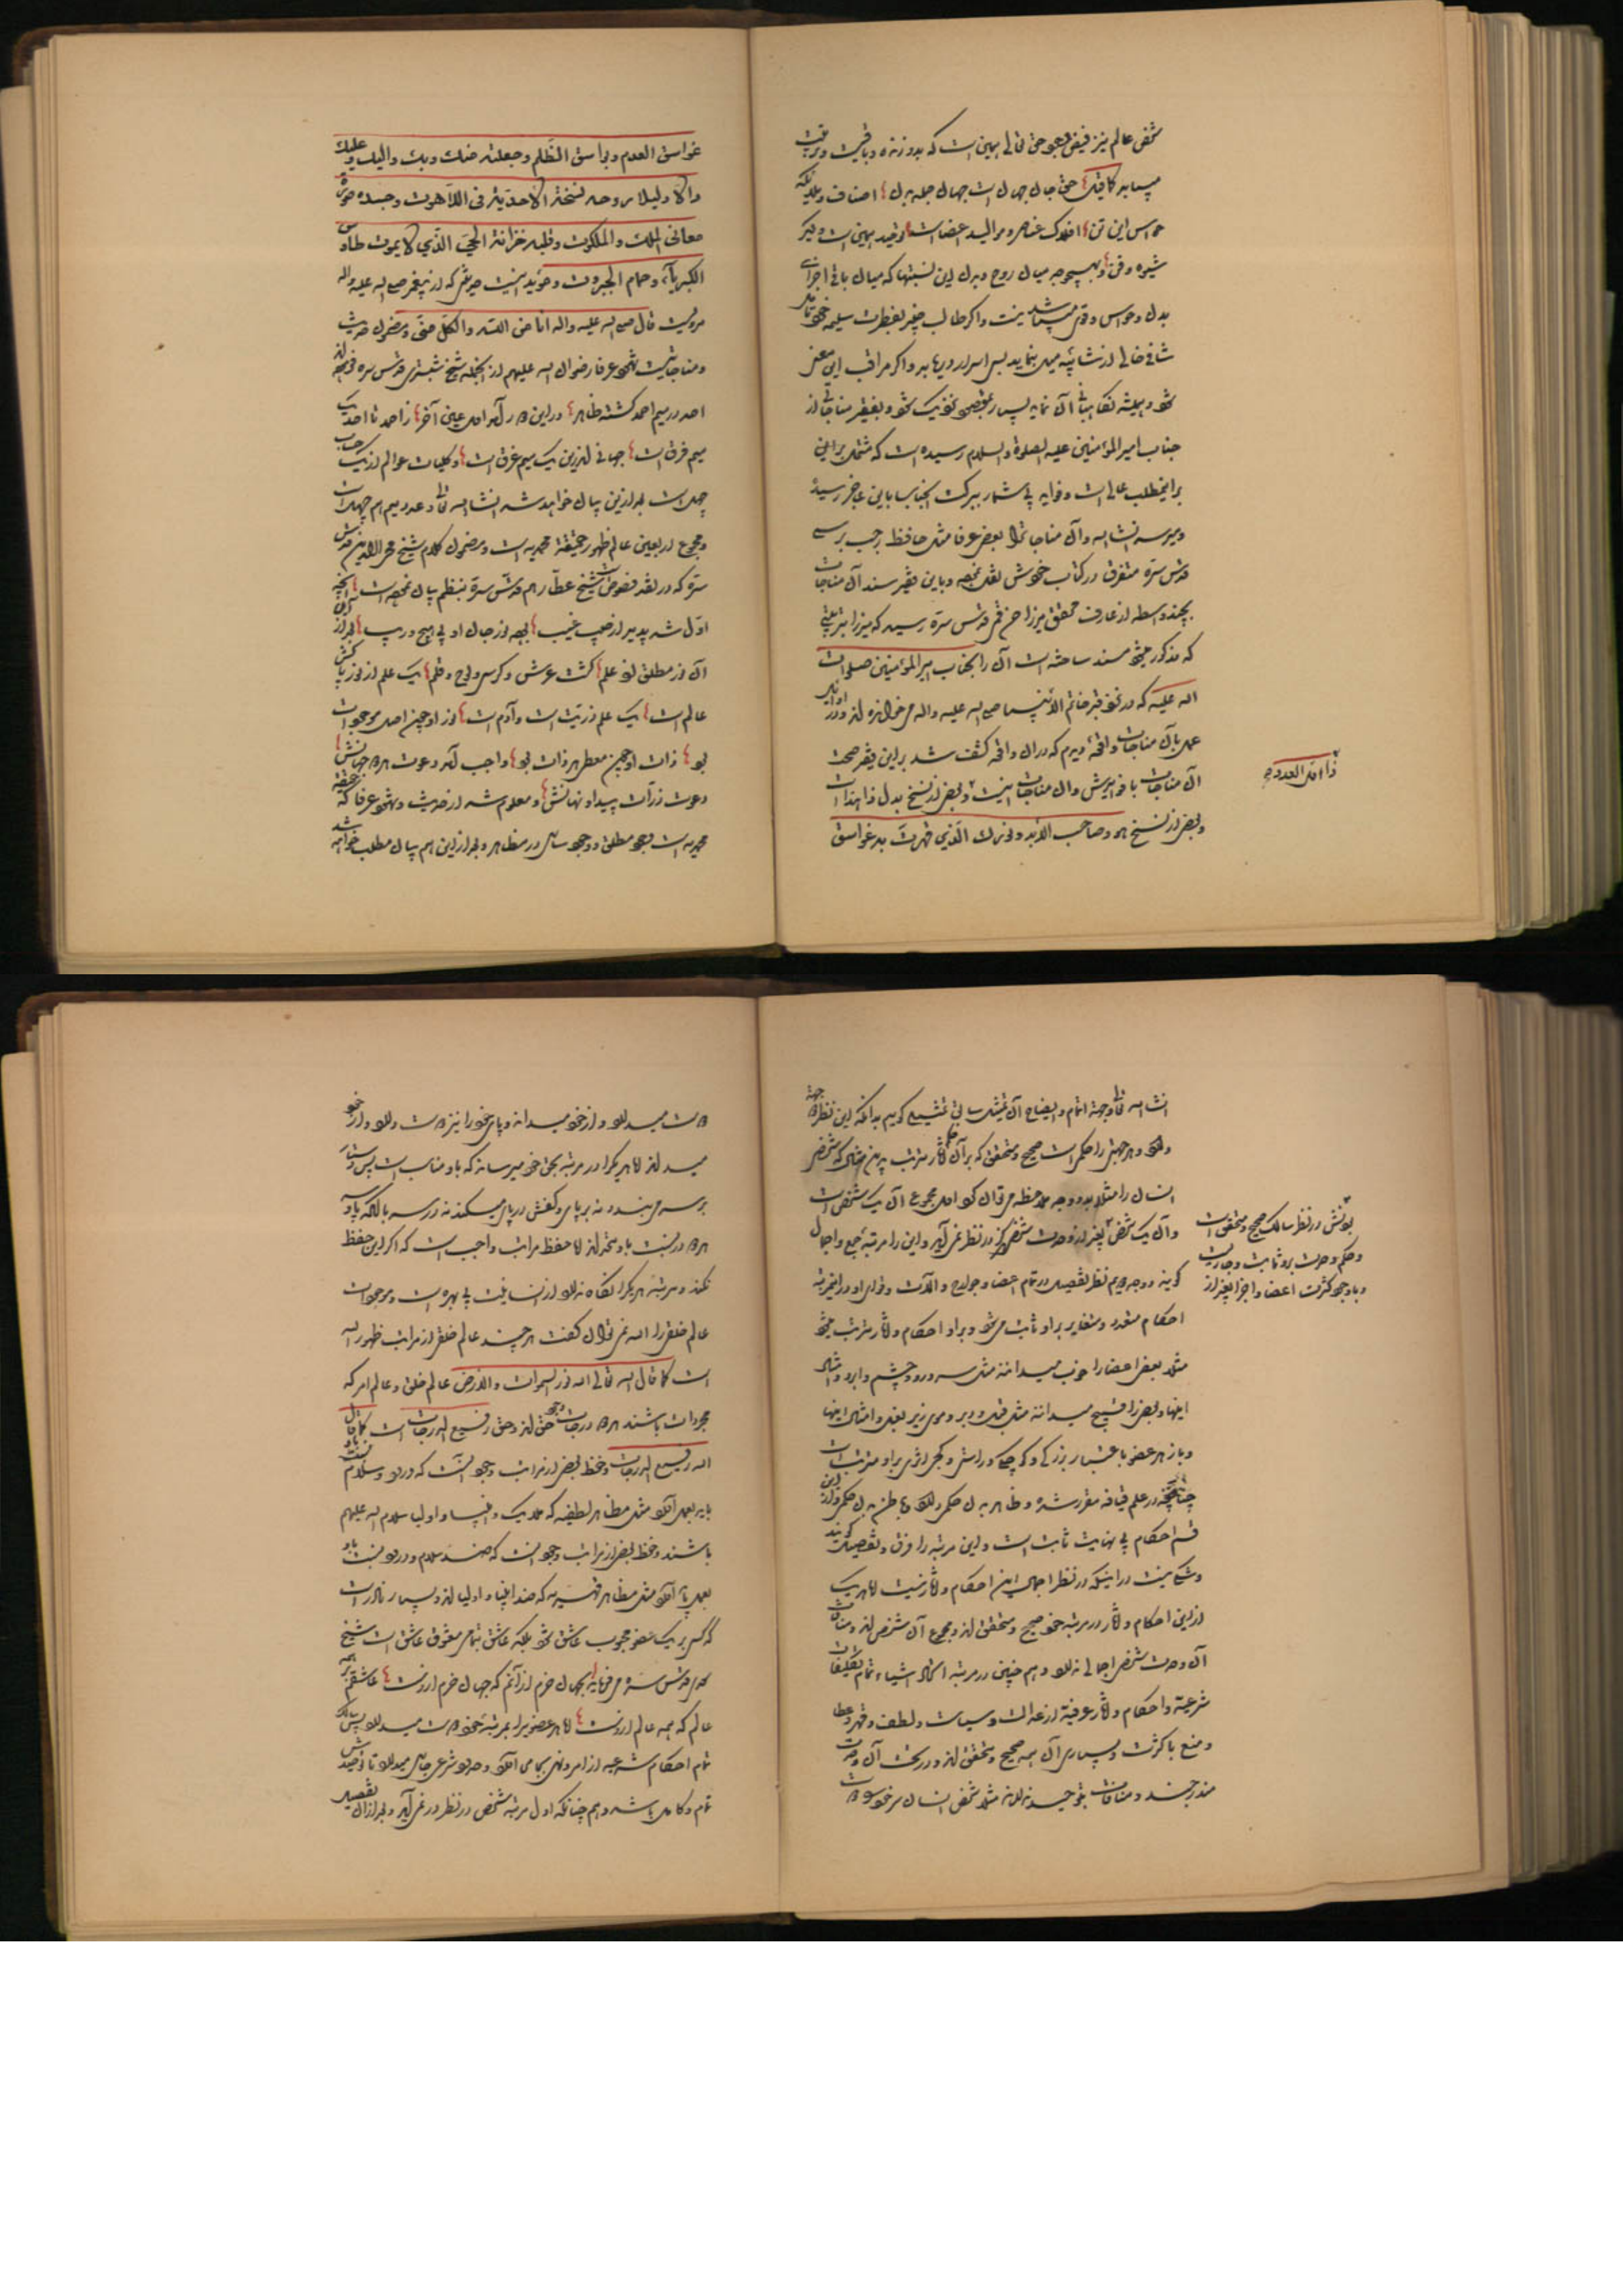 شخص عالم نیز فیض وجود حق تعالی همین است که بدو زنده و باقیست و تربیت
میباید کما قیل حق جان جهان است جهان جمله بدن اصناف ملایکه
حواس این تن افلاک عناصر و موالید اعضا است توحید همین است و دیگر
شیوه و فن و بهیچوجه میان روح و بدن این نسبتها که میان باقی اجزای
بدن و حواس و قوی میباشد نیست و اگر طالب خبیر بفطرت سلیمه خود تامل
شافی خالی از شائبه میل بنماید بس اسرار دریابد و اگر مراقب این معنی
شود و همیشه نگاهبانی آن نماید بسیار بمقصود نزدیک شود و بفقیر مناجاتی از
جناب امیرالمؤمنین علیه الصلوة والسلام رسیده است که مشتمل براین
براینمطلب عالی است و فواید بی شمار ببرکت آنجناب باین عاجز رسیده
و میرسد انشاالله و آن مناجات را بعضی عرفا مثل حافظ رجب برسی
قدس سره متفرق در کتاب خودش نقل نموده و باین فقیر سند آن مناجات
بچند واسطه از عارف محقق میرزا حسن قمی قدس سره رسید که میرزا
که مذکور میشود مسند ساخته است آن را بجناب امیرالمؤمنین صلوات
الله علیه که در نزد قبر خاتم الانبیا صلی الله علیه واله می خوانده اند و در اوایل
عمل بآن مناجات واقعه دیدم که در آن واقعه کشف شد براین فقیر صحت
آن مناجات با خواندنش و آن مناجات اینست و بعضی از نسخ بدل ذا بهذا است
و بعضی از نسخ هو و صاحب الابد و نورك الذی قهرت به غواسق
ذا اول العدد
غواسق العدم وبواسق الظلم وجعلته منك وبك والیك وعلیك
دالا دلیلا روحه نسخة الاحدیة فی اللاهوت وجسده صورة
معانی الملك والملكوت وقلبه خزانة الحی الذی لا یموت طاوس
الكبریاء وحمام الجبروت و مؤید اینست حدیثی که از پیغمبر صلی الله علیه واله
مرویست قال صلی الله علیه واله انا من الله والكل منی و مضمون حدیث
و مناجاتست شهود عرفا رضوان الله علیهم از آنجمله شیخ شبستری قدس سره فرموده اند
احد در میم احمد گشته ظاهر درین دور آمد اول عین آخر ز احمد تا احد یک
میم فرق است جهانی اندرین یک میم غرق است و کلیات عوالم از یک حساب
چهل است بعد ازین بیان خواهد شد انشا الله تعالی و عدد میم هم چهل است
و مجموع اربعین عالم ظهور حقیقة محمدیه است و مضمون کلام شیخ محی الدین قدس
سره که در نقد فصوص است شیخ عطار هم قدس سره بنظم بیان نموده است آنچه
اول شد پدید از جیب غیب بود نور جان او بی هیچ ریب بعد از
آن نور مطلق زد علم گشت عرش و کرسی و لوح و قلم یک علم از نور پاکش
عالم است یک علم ذریت است و آدم است نور او چون اصل موجودات
بود ذات او چون معطی هر ذات بود واجب آمد دعوت هر دو جهانش
دعوت ذرات پیدا و نهانش و معلوم شد از حدیث و شهود عرفا که حقیقة
محمدیه است وجود مطلق و وجود ساری در مظاهر و بعد ازین هم بیان مطلب خواهد شد
انشا الله تعالی و جهة اتمام و ایضاح آن تمثیل سابق تمثیلی گوییم بدانکه این نظر دو جهة
دارد و هر جهتی را حکمی است صحیح و متحقق که برآن حکم آثار مترتب بدین مثال که شخص
انسان را مثلا بدو وجه ملاحظه می توان کرد اول مجموع آن یک شخص است
و آن یک شخص بغیر از وحدت شخصی دیگر در نظر نمی آید و این را مرتبه جمع و اجمال
گویند و وجه دویم نظر تفصیل در تمام اعضا و جوارح و الات و قوای او در اینمرتبه
احکام متعدد و متغایر براو ثابت می شود و براو احکام و آثار مترتب میشود
مثلا بعضی اعضا را خوب میدانند مثل سر و رو و چشم و ابرو و امثال
اینها و بعضی را قبیح میدانند مثل قبل و دبر و موی زیر بغل و امثال اینها
و باز هر عضو باعتبار بزرگی و کوچکی و راستی و کجی اثری براو مترتب است
چنانچه در علم قیافه مقرر شده و ظاهر بدن حکمی دارد و باطن بدن حکمی و ازین
قسم احکام بی نهایت ثابت است و این مرتبه را فرق و تفصیل گویند
و شکی نیست در اینکه در نظر اجمال این احکام و آثار نیست اما هر یک
ازین احکام و آثار در مرتبه خود صحیح و متحقق اند و مجموع آن شخص اند و منافات
آن وحدت شخصی اجمالی ندارد و هم چنین در مرتبه اعیان اشیاء تمام تکلیفات
شرعیه و احکام و آثار عرفیه از عدالت و سیاست و لطف و قهر و عطا
و منع با کثرت و بسیاری آن همه صحیح و متحقق اند و در تحت آن وحدت
مندرجند و منافات بتوحید ندارند مثلا شخص انسان سر خود را دوست
بودنش در نظر سالک صحیح و متحقق است
و حکم وحدت برو ثابت و جاریست
و با وجود کثرت اعضا و اجزا بغیر از
دوست میدارد و از خود میداند و پای خود را نیز دوست دارد و از خود
میداند اما هر یکرا در مرتبه بحق خود میرساند که باو مناسب است پس دستار
بر سر می بندد نه بر پای و کفش در پای میکند نه در سر با آنکه پا و سر
هر دو در نسبت باو متحد اند اما حفظ مراتب واجب است که اگر این حفظ
نکند و مرتبه هر یکرا نگاه ندارد از انسانیت بی بهره است و موجودات
عالم خلق را الله نمی توان گفت هر چند عالم خلق از مراتب ظهور الله
است كما قال الله تعالی الله نور السموات والارض عالم خلق و عالم امر که
مجردات باشند هر دو درجات وجود حق اند و حق رفیع الدرجات است كما قال
الله رفیع الدرجات و حفظ بعضی از مراتب وجود آنست که درود و سلام باو نسبت
باید بعمل آورد مثل مظاهر لطیفه که ملایک و انبیا و اولیا سلام الله علیهم
باشند و حفظ بعضی از مراتب وجود آنست که ضد سلام و درود نسبت باو
بعمل باید آورد مثل مظاهر قهریه که ضد انبیا و اولیا اند و بسیار نادر است
که کسی بر یک عضو محبوب عاشق شود بلکه عاشق بتمامی معشوق عاشق است شیخ
سعدی قدس سره می فرماید بجهان خرم از آنم که جهان خرم ازوست عاشقم بر همه
عالم که همه عالم ازوست اما هر عضوی را بمرتبه خود دوست میدارد پس سالک
تمام احکام شرعیه از امر و نهی بجا می آورد و حدود شرعی جاری میدارد تا توحیدش
تمام و کامل باشد و هم چنانکه اول مرتبه شخص در نظر در نمی آید و بعد از آن تفصیل